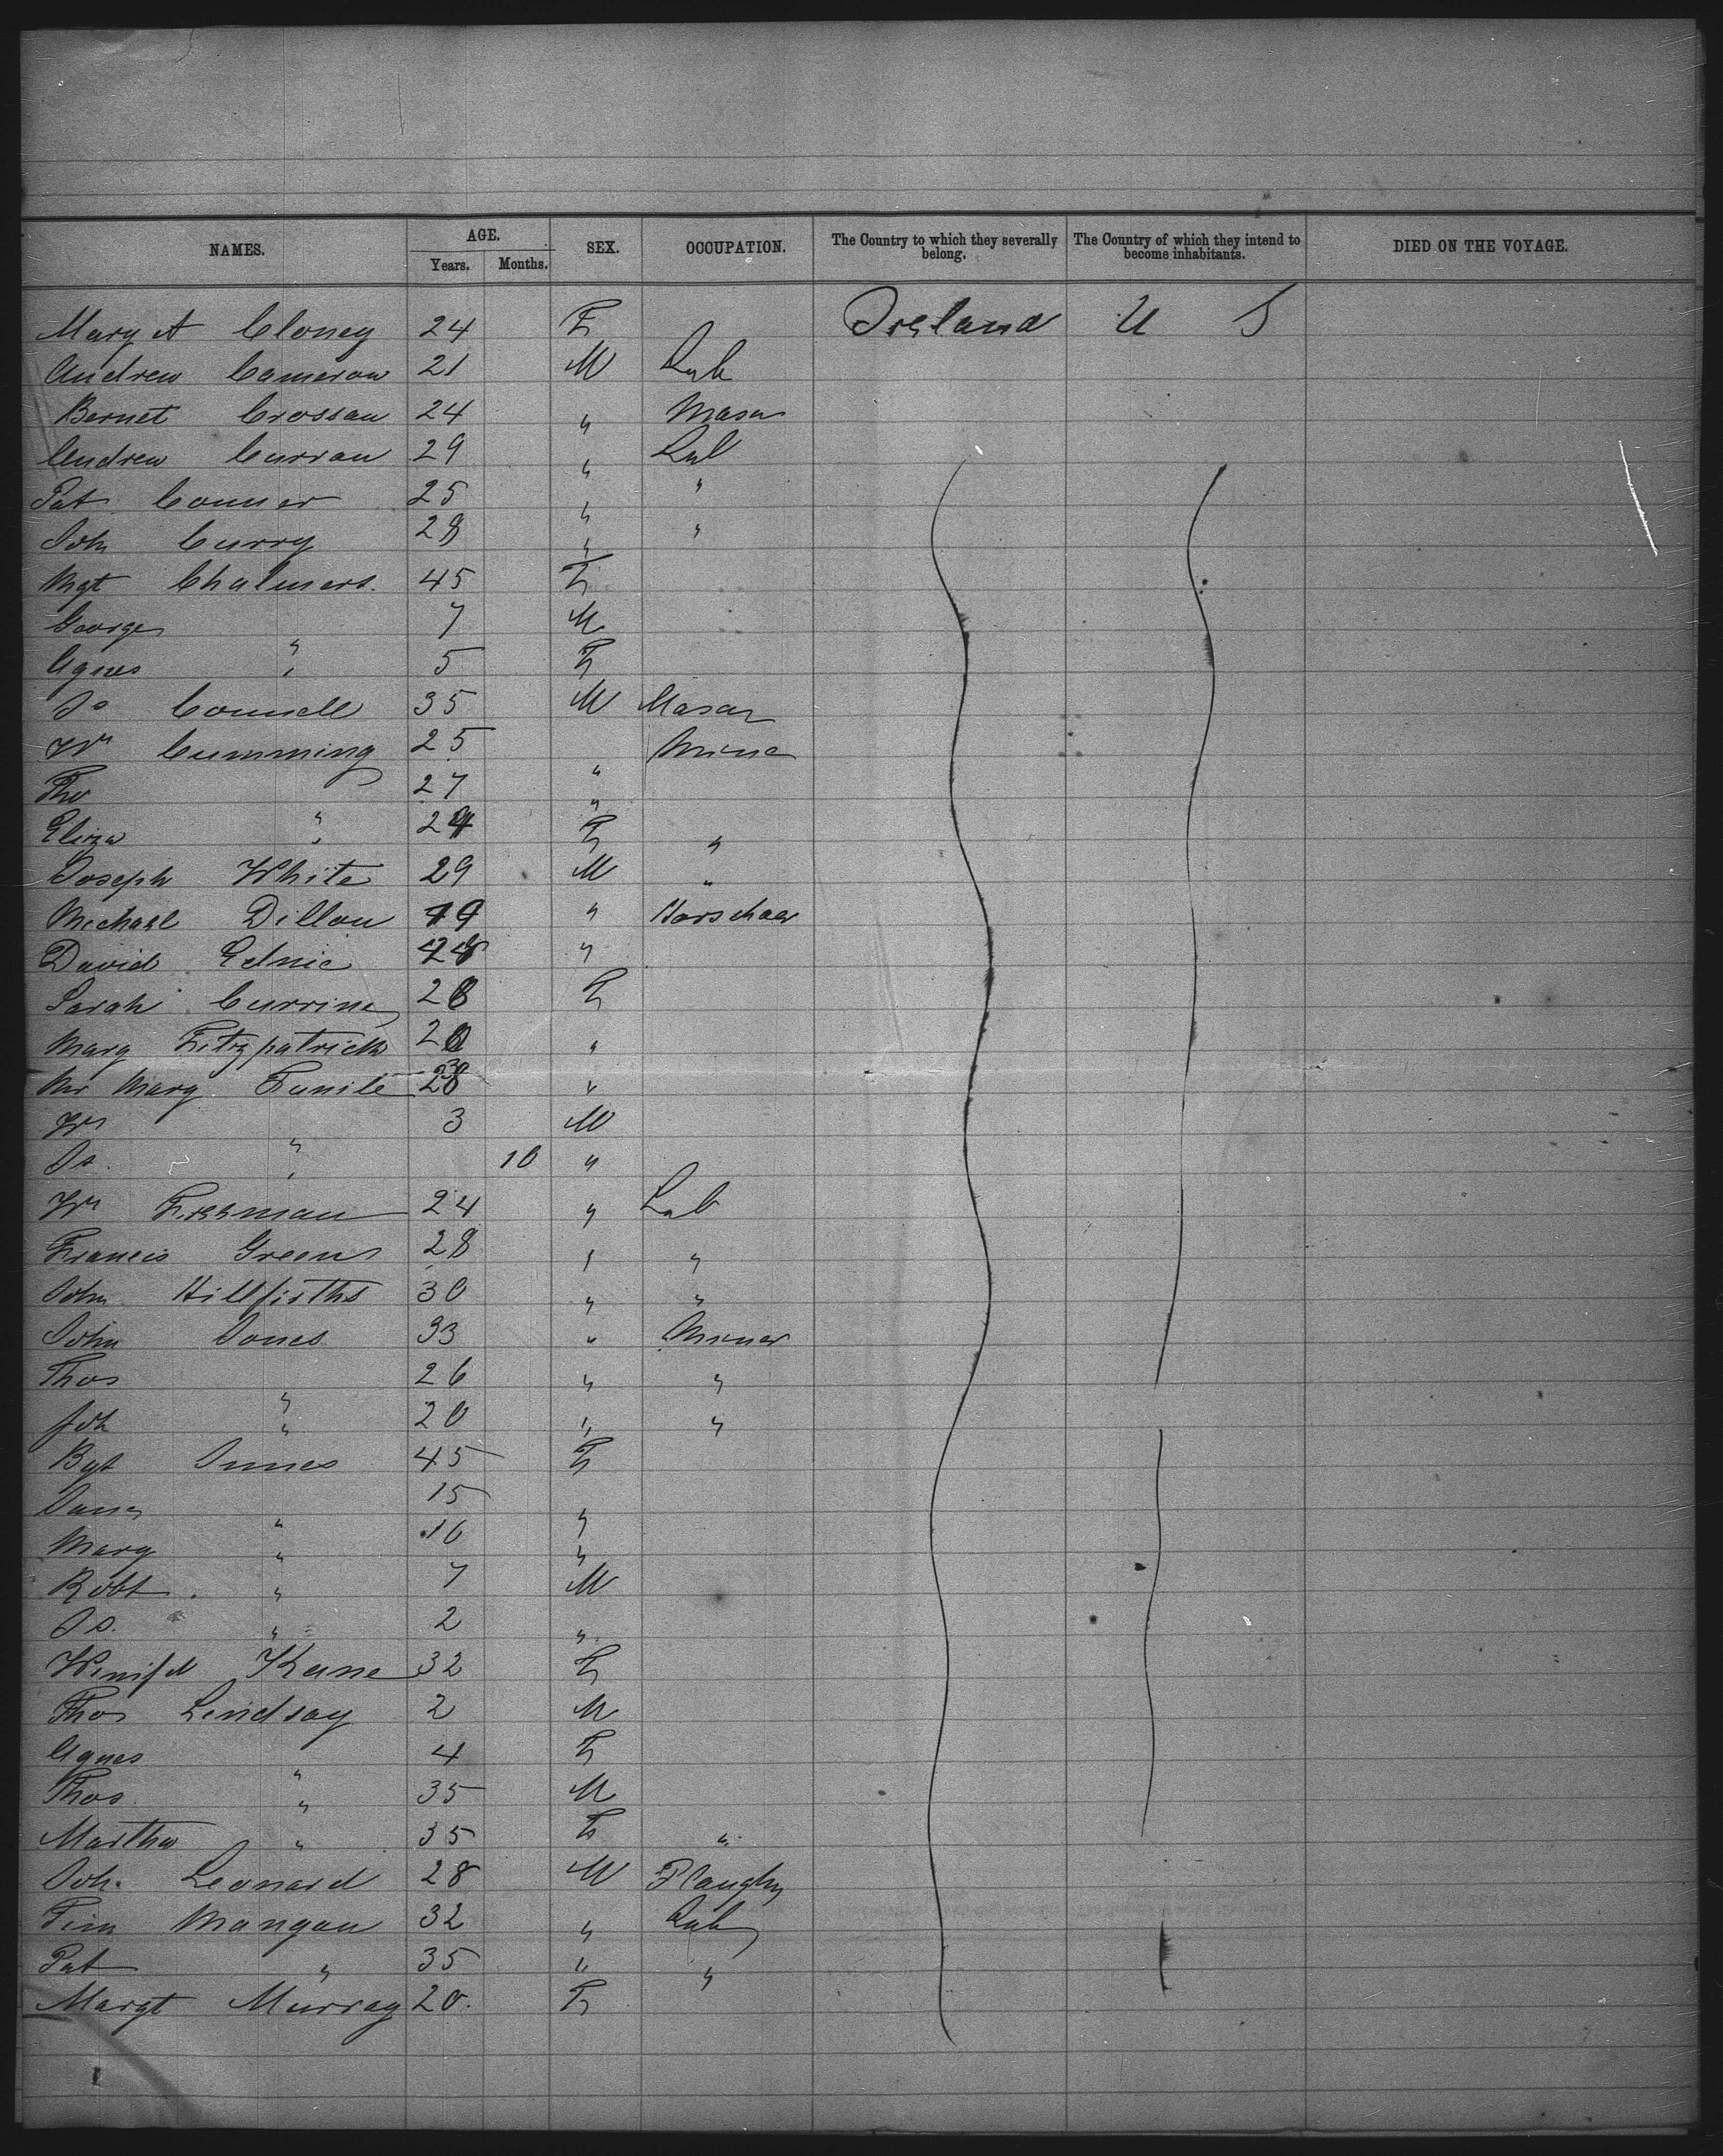 NAMES. AGE. SEX. OCCUPATION. The Country to which they severally belong. The Country of which they intend to become inhabitants. DIED ON THE VOYAGE.
Years. Months.
Mary A Cloney 24 F Ireland U S
Andrew Cameron 21 M Lab
Bernet Crossan 24 " Mason
Andrew Curran 29 " Lab
Pat Conner 25 " "
Joh Curry 28 " "
Mgt Chalmers. 45 F
George " 7 M
Agnes " 5 F
Js Connell 35 M Mason
Wm Cumming 25 " Mine
Tho " 27 "
Eliza " 24 F "
Joseph White 29 M "
Michael Dillon 49 "
David 28 "
Sarah Currine 28 F
Mary Fitzpatrick 20 "
Mr Mary 28 "
Wm " 3 M
Js. " 10 "
Wm Freeman 24 " Lab
Francis Green 28 " "
John Hillfirths 30 " "
John Jones 33 " Miner
Thos " 26 " "
Joh " 20 " "
Bgt Innes 45 F
Jane " 15 "
Mary " 16 "
Robt. " 7 M
Js. " 2 "
Winifd Kane 32 F
Thos Lindsay 2 M
Agnes " 4 F
Thos " 35 M
Martha " 35 F "
Joh. Leonard 28 M Ploughn
Tim Mangan 32 " Lab
Pat " 35 " "
Margt Murray 20. F